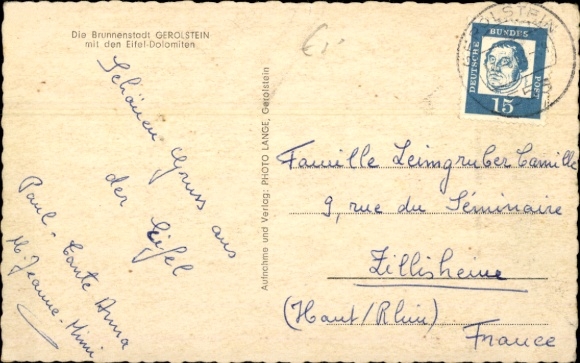 Die Brunnenstadt GEROLSTEIN
mit den Eifel-Dolomiten
Schönen Gruss aus
der Eifel
Paul - Tante Anna
M. Jeanne - Mimi
Aufnahme und Verlag: PHOTO LANGE, Gerolstein
GEROLSTEIN
DEUTSCHE BUNDES POST
15
Famille Leimgruber Camille
9, rue du Séminaire
Zillisheim
(Haut/Rhin)
France